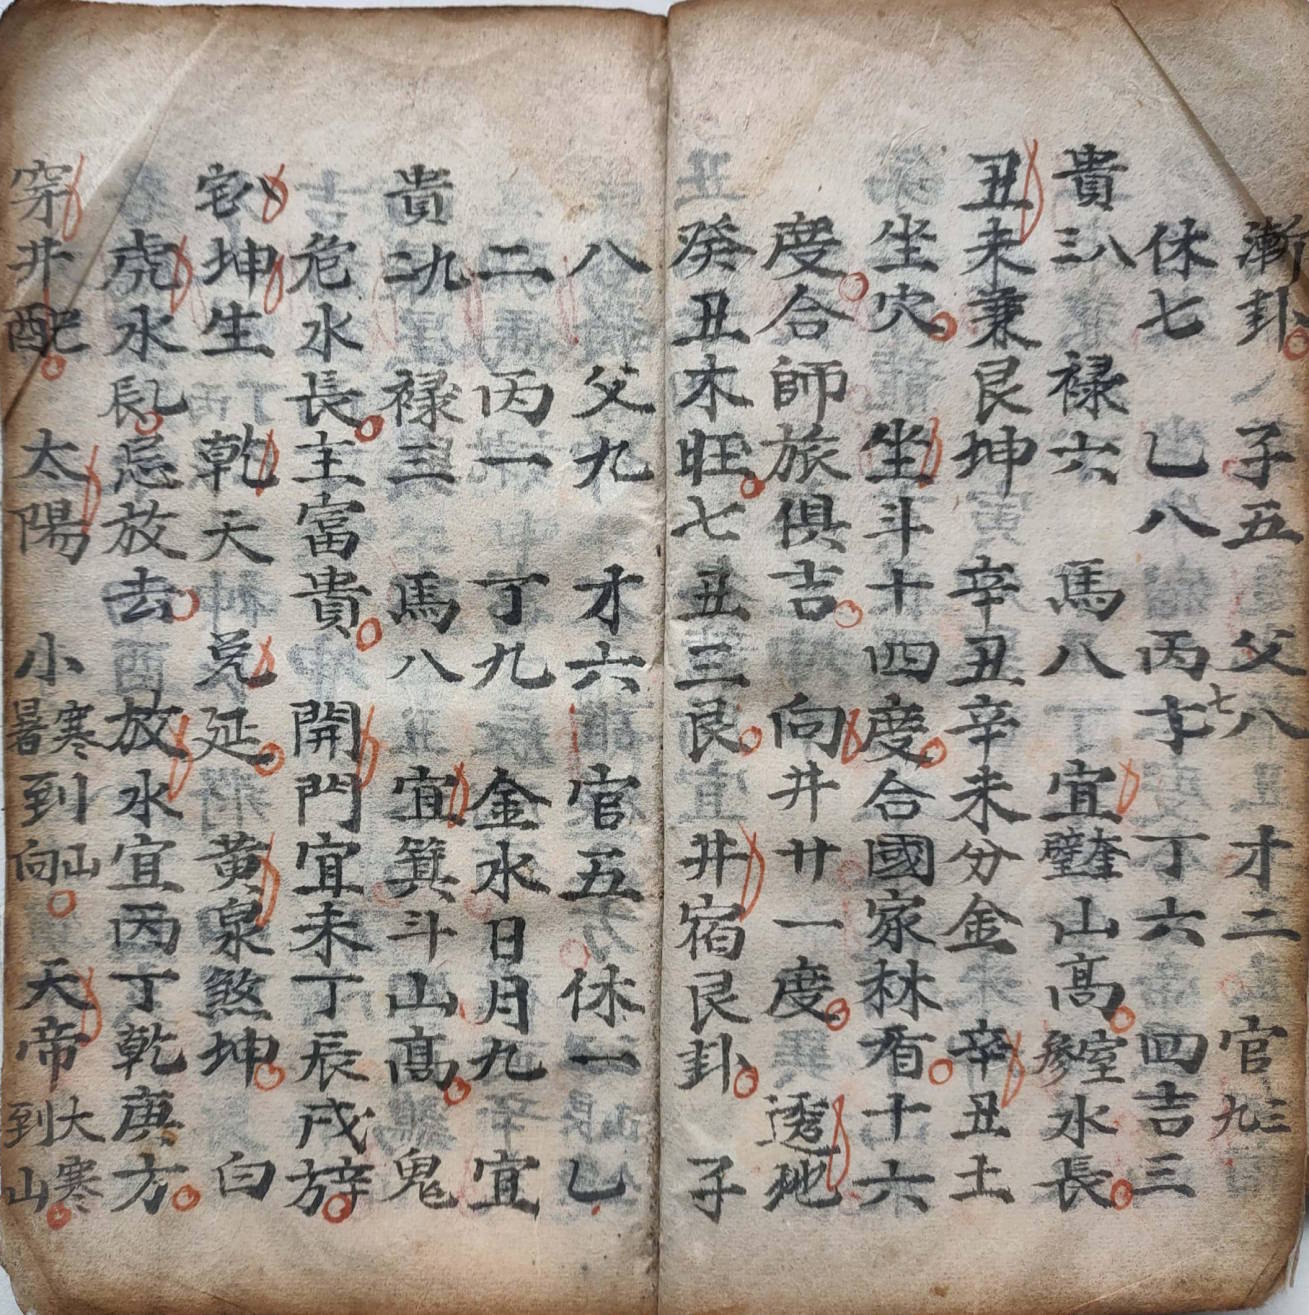 漸卦子五父八才二官三九
休七乙八丙七丁六四吉三
貴三八祿六馬八宜奎壁山高參室水長
丑未兼艮坤辛丑辛未分金辛丑土
坐穴坐斗十四度合國家林看十六
度合師旅俱吉向井廿一度透地
癸丑木旺七丑三艮井宿艮卦子
八父九才六官五休一乙
二丙一丁九金水日月九宜
貴二九祿三馬八宜箕斗山高鬼
危水長主富貴開門宜未丁辰戌辞
宅坤生乾天兌延黃泉煞坤白
虎水亂忌放去放水宜丙丁乾庚方
穿井配太陽小暑寒到山向天帝大寒到山